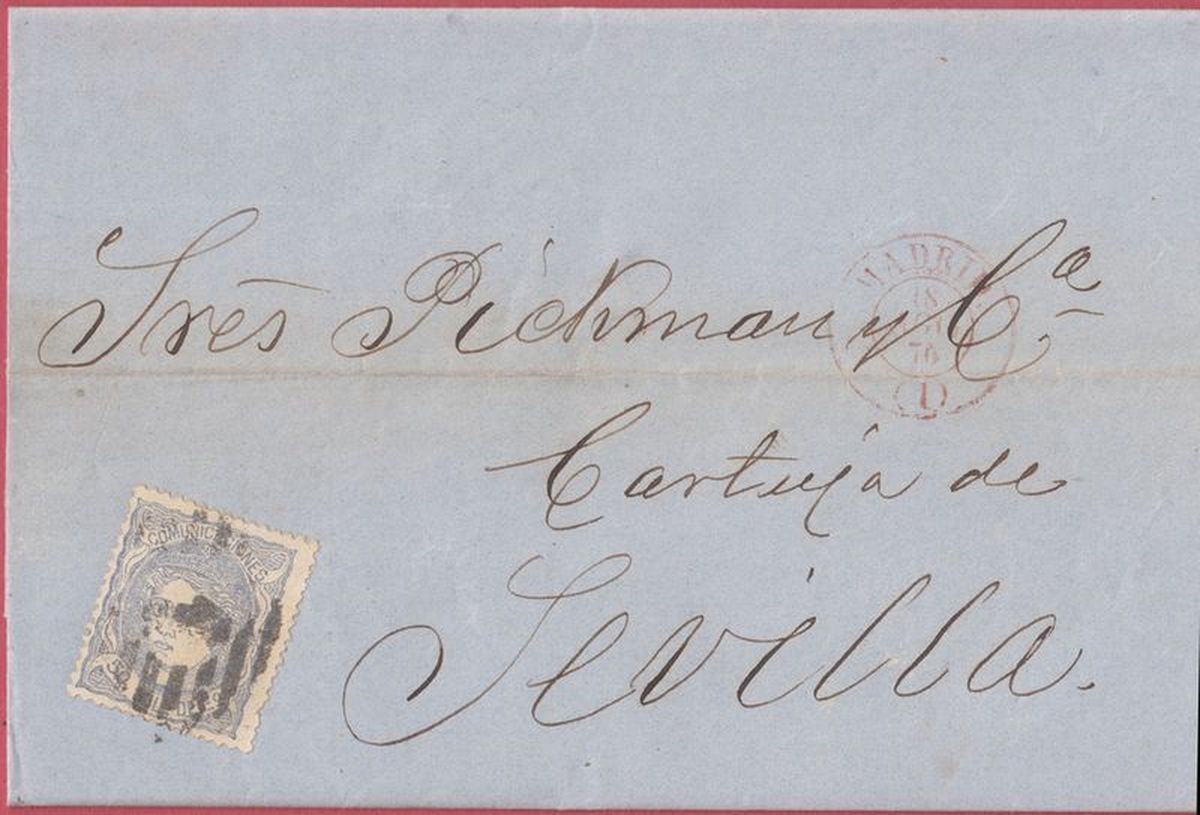 MADRID
18
70
(1)
Sres Pickman y Cª
Cartuja de
Sevilla.
COMUNICACIONES
50